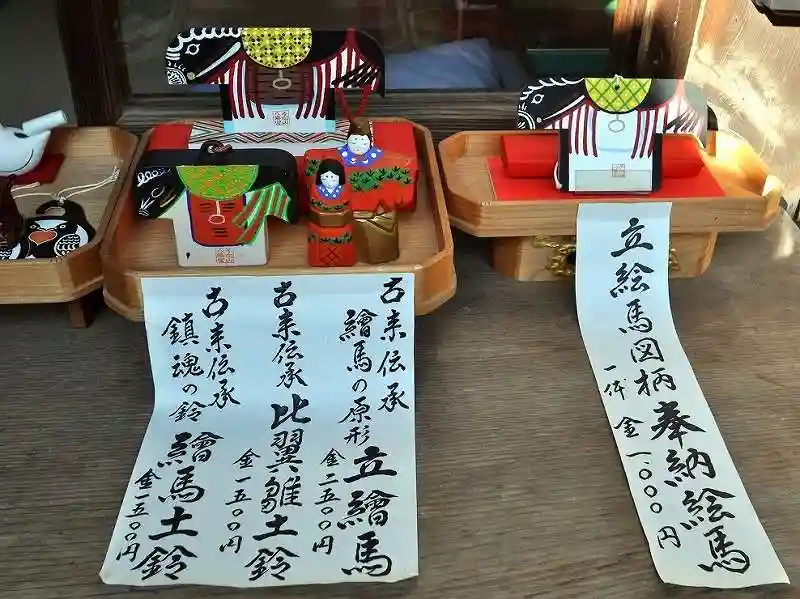 古来伝承
繪馬の原形
立繪馬
金二五〇〇円
古来伝承
比翼雛土鈴
金一五〇〇円
古来伝承
鎮魂の鈴
繪馬土鈴
金一五〇〇円
立絵馬図柄
奉納絵馬
一体 金一、〇〇〇円